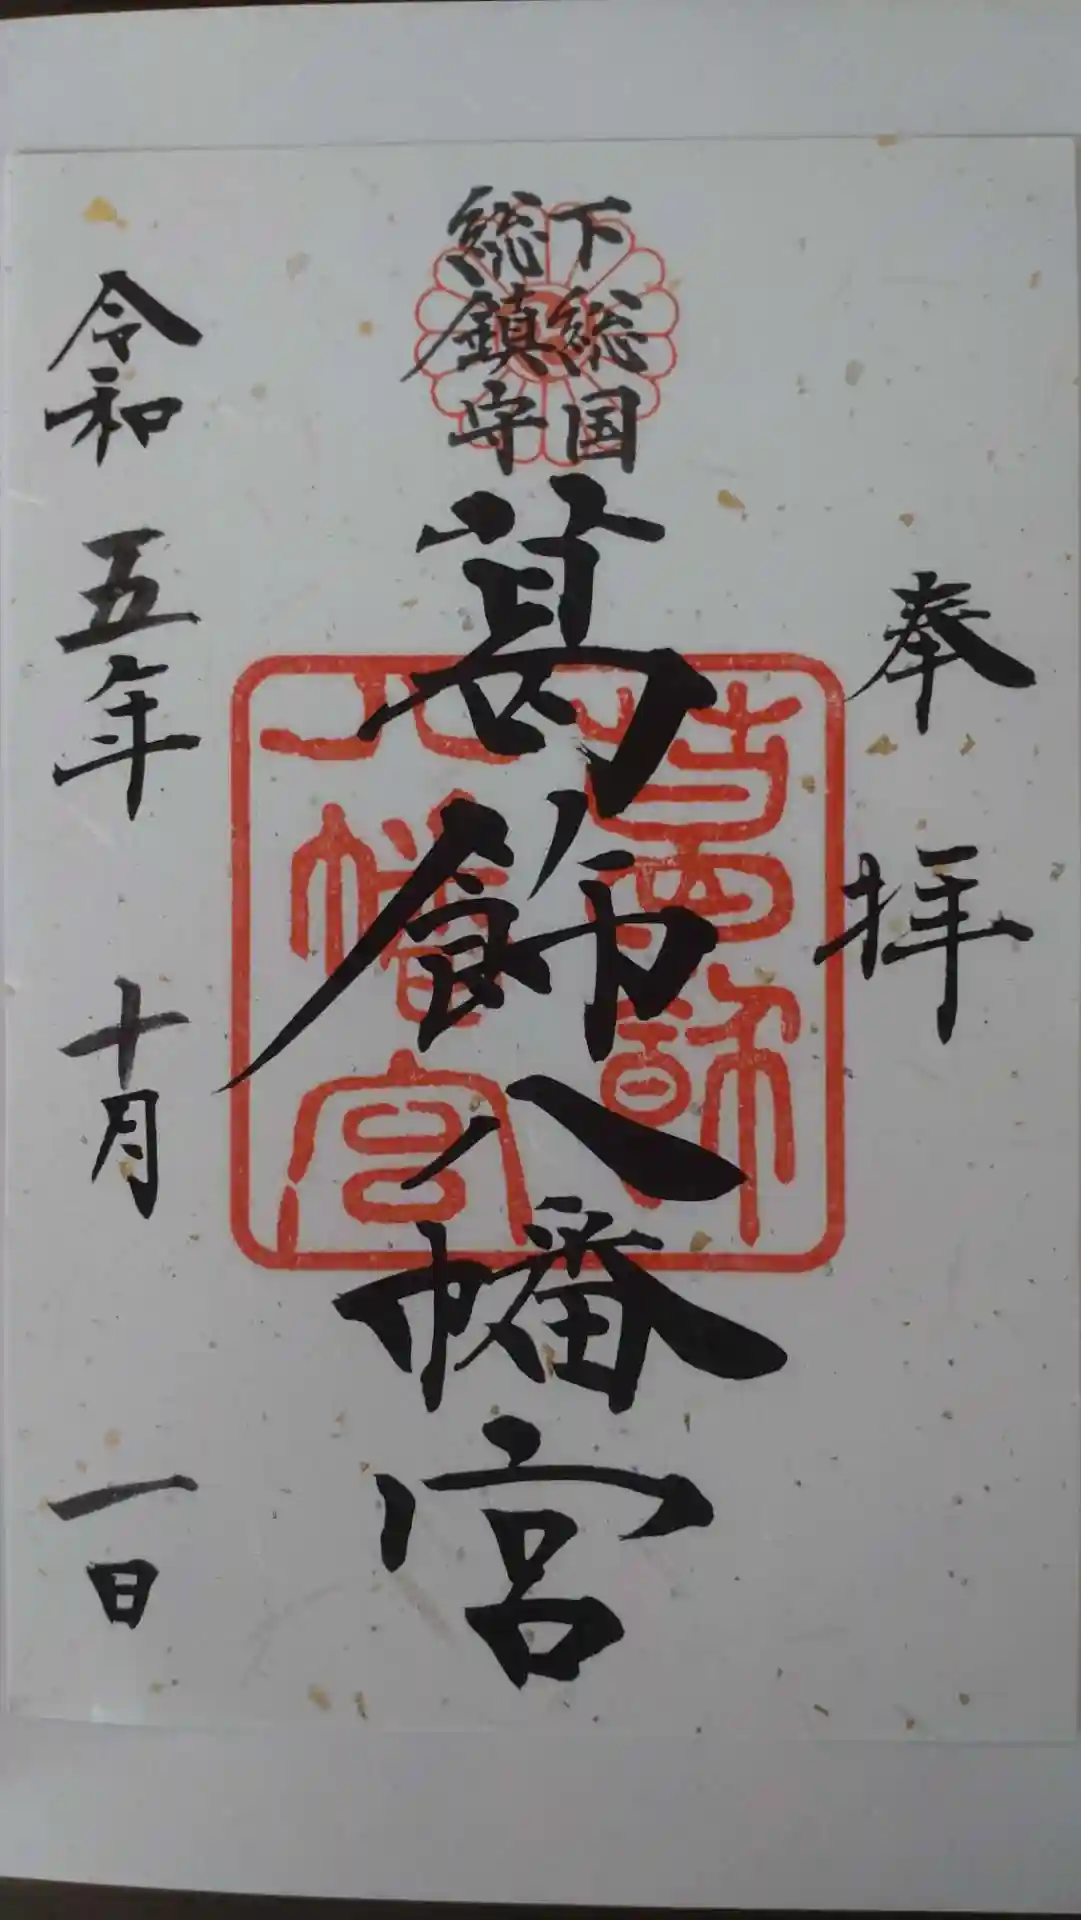 奉拝
下総国
総鎮守
葛飾八幡宮
八幡宮
令和五年十月一日